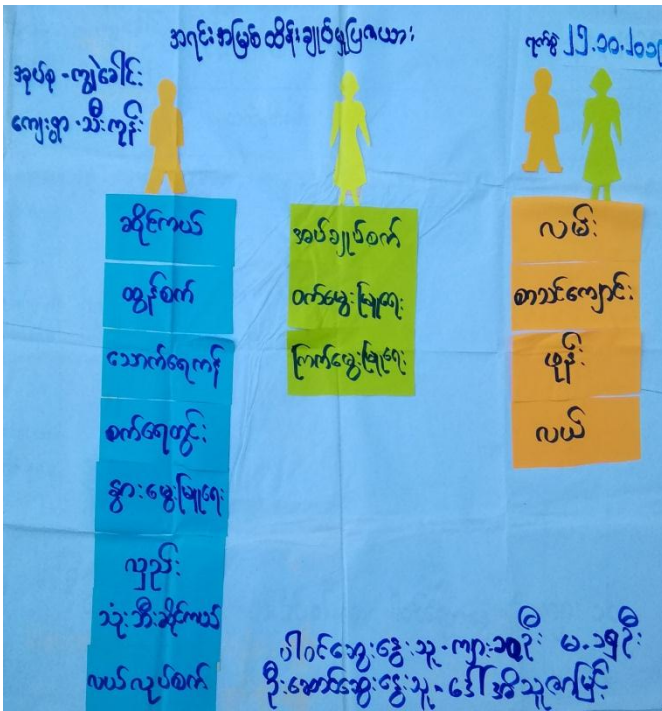 အရင်းအမြစ်ထိန်းချုပ်မှုပြဇယား
ရက်စွဲ ၂၅.၁၀.၂၀၁၉
အုပ်စု - ကျွဲခေါင်း
ကျေးရွာ - သီးကုန်း
ဆိုင်ကယ်
ထွန်စက်
သောက်ရေကန်
စက်ရေတွင်း
နွားမွေးမြူရေး
လှည်း
သုံးဘီးဆိုင်ကယ်
လယ်လုပ်စက်
အပ်ချုပ်စက်
ဝက်မွေးမြူရေး
ကြက်မွေးမြူရေး
လမ်း
စာသင်ကျောင်း
ဖုန်း
လယ်
ပါဝင်ဆွေးနွေးသူ - ကျား ဦး မ - ၁၅ဦး
ဦးဆောင်ဆွေးနွေးသူ - ဒေါ်အိသူဇာမြင့်